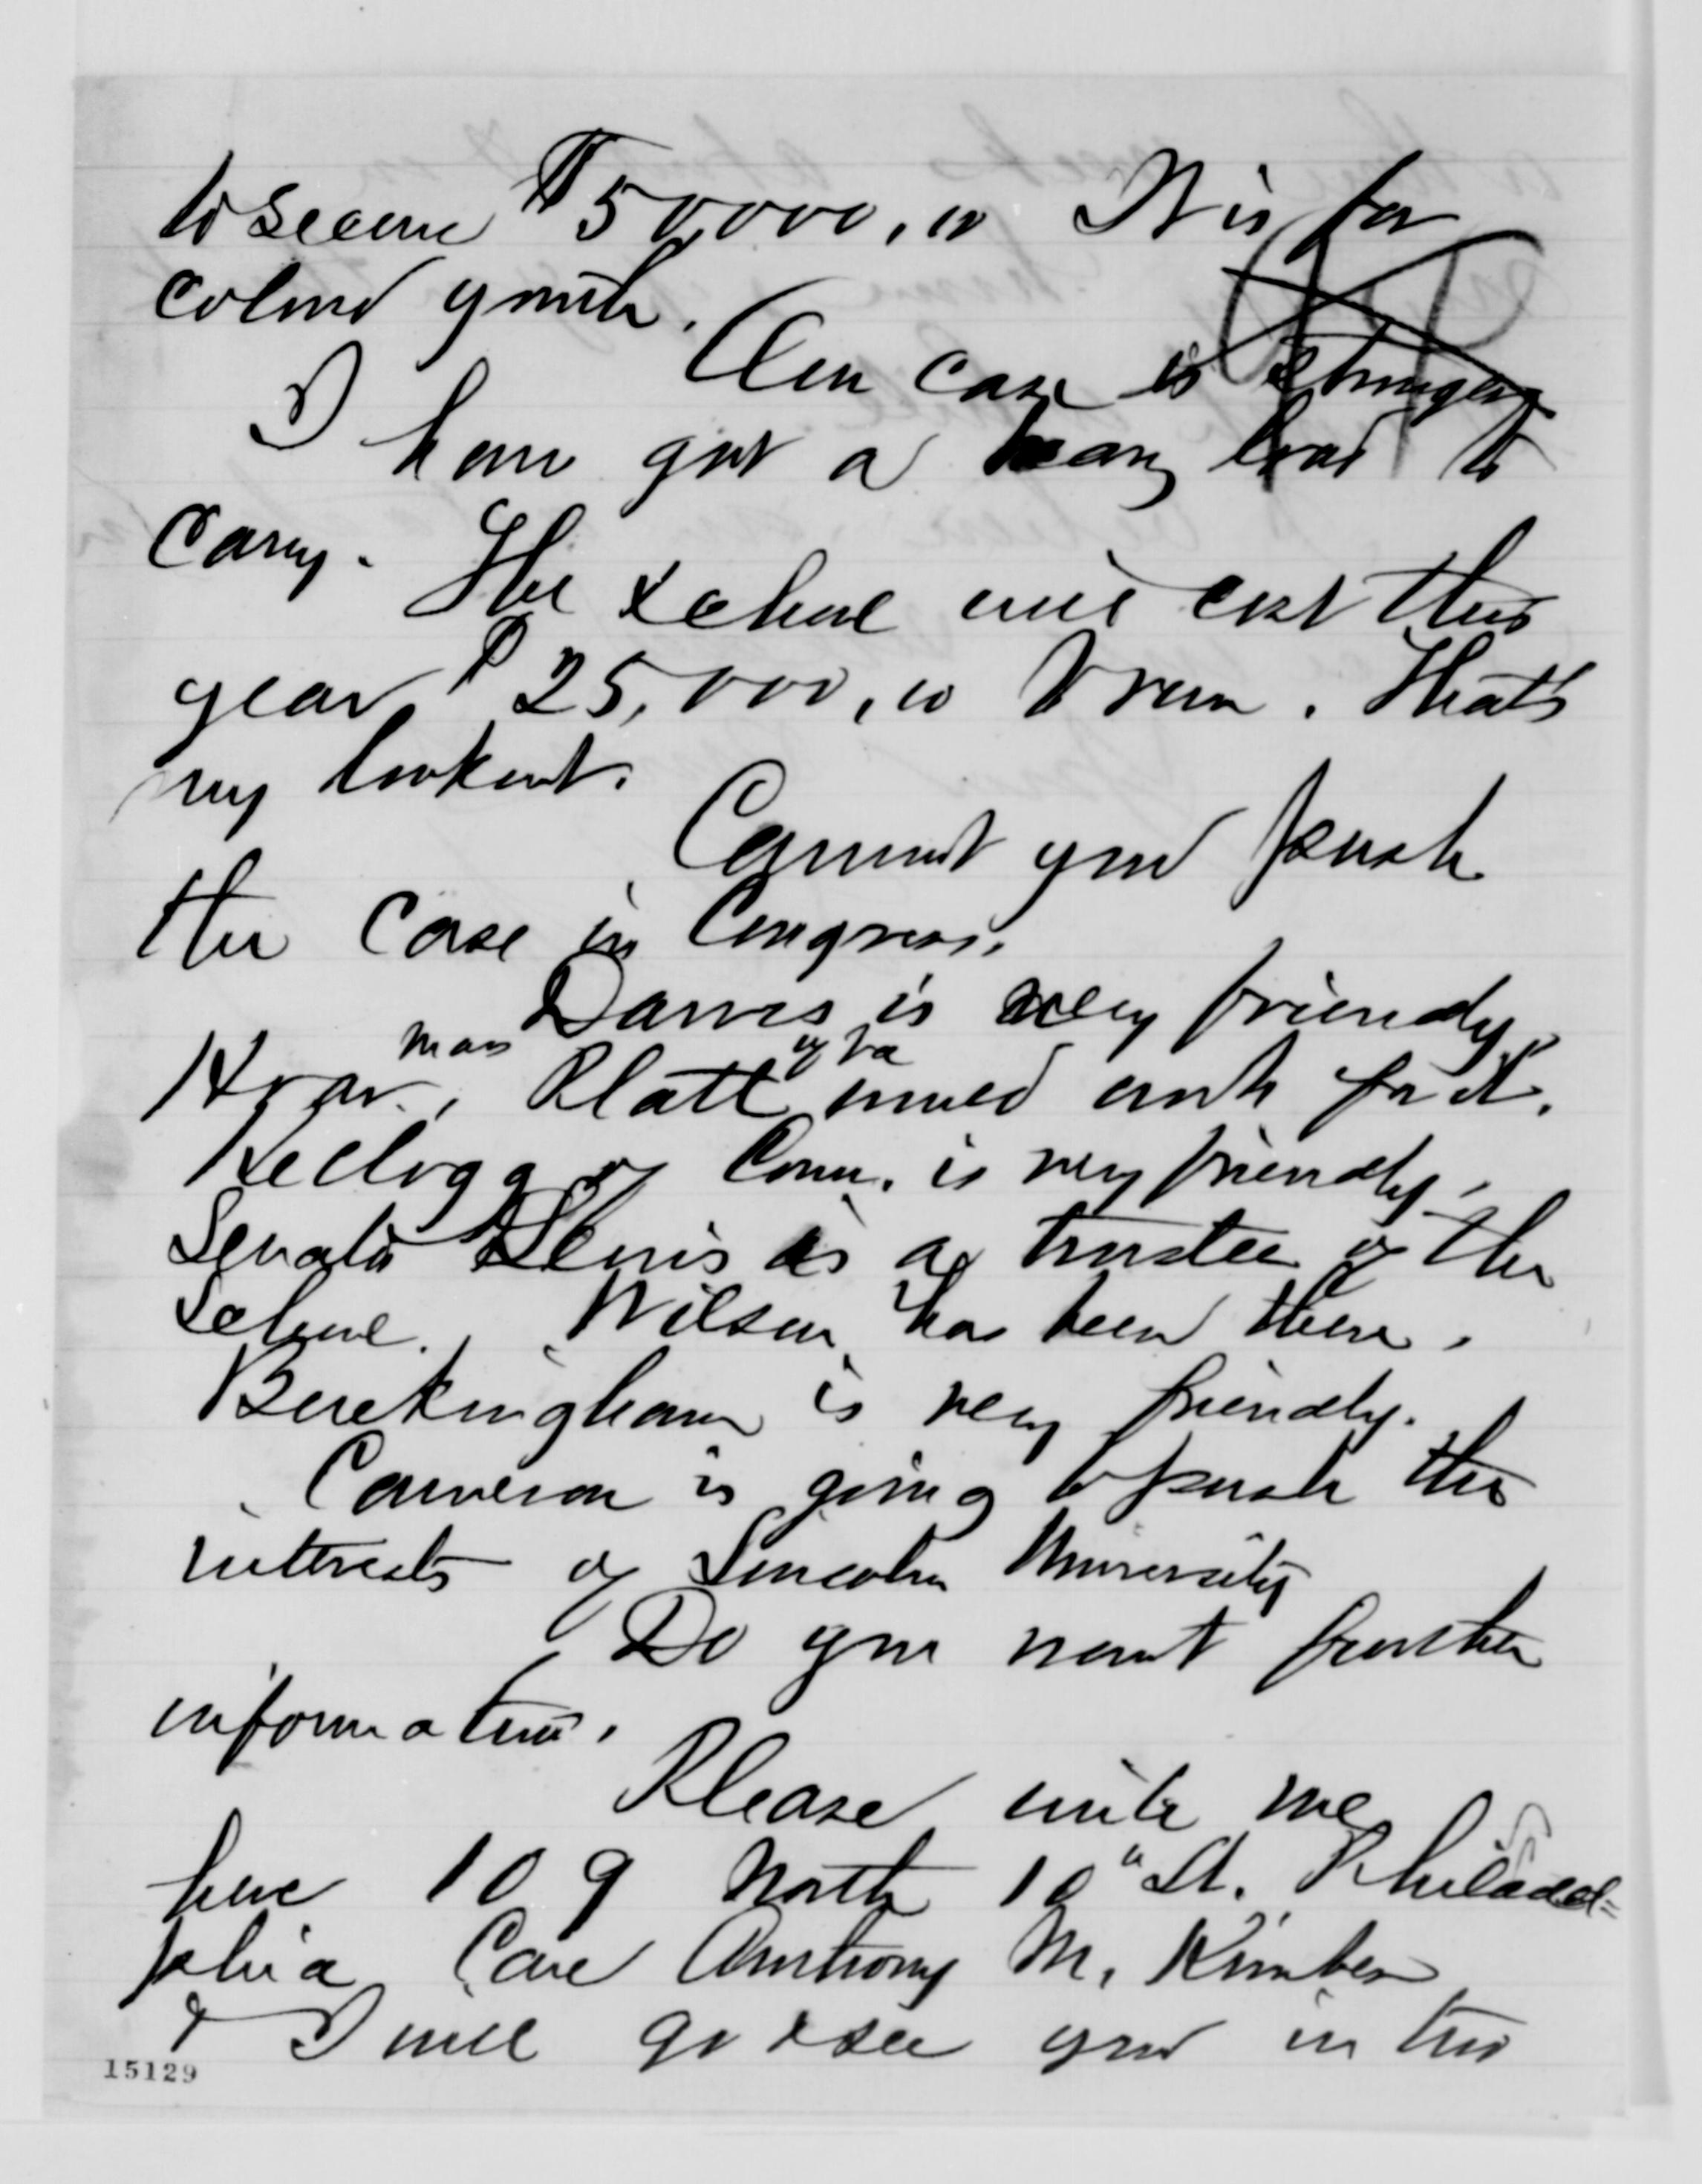 to secure $50,000,00 It is for
colored youth.
Our case is stronger
I have got a heavy load to
carry. The school will cost this
year $25,000,00 to run. That's
my lookout.
Cannot you push
the case in Congress.
Dawes is very friendly,
Mass of Va
Hoar, Platt will work for it.
Kellogg of Conn. is very friendly,
Senator Lewis is a trustee of the
School. Wilson has been there.
Buckingham is very friendly.
Cameron is going to push the
interests of Lincoln University
Do you want further
information.
Please write me
here 109 North 10" St. Philadel=
phia Care Anthony M. Kimber
& I will go & see you in two
15129